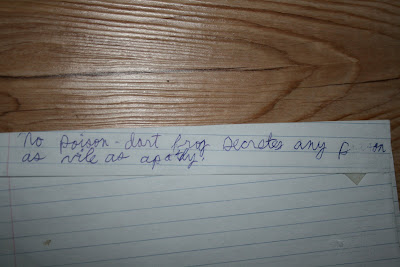 "No poison-dart frog secretes any
as vile as apathy."